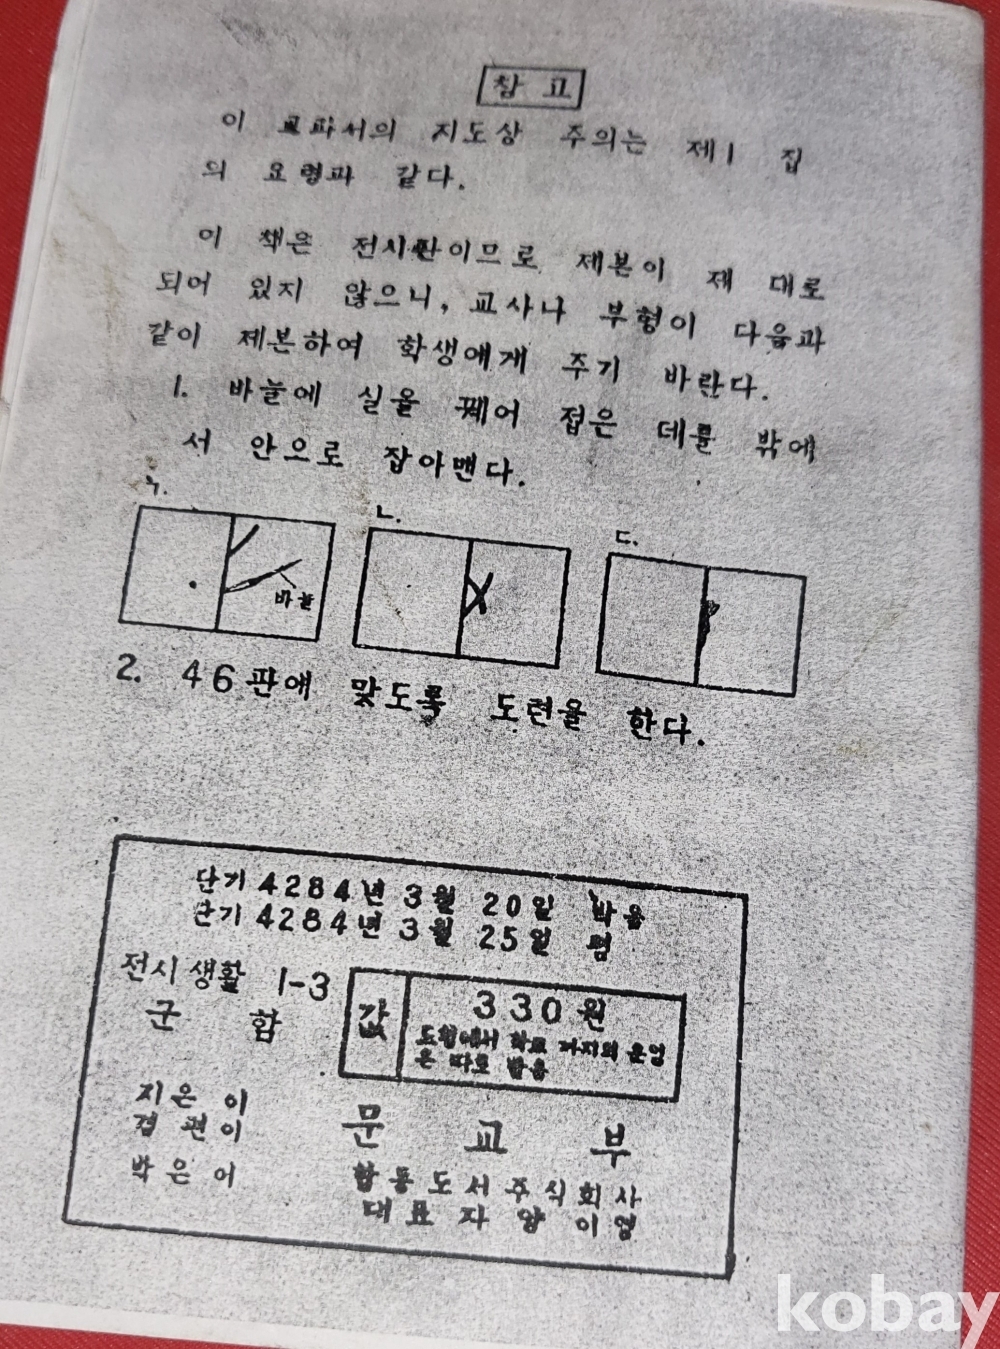 참 고
이 교과서의 지도상 주의는 제1 집
의 요령과 같다.
이 책은 전시판이므로 제본이 제 대로
되어 있지 않으니, 교사나 부형이 다음과
같이 제본하여 학생에게 주기 바란다.
1. 바늘에 실을 꿰어 접은 데를 밖에
서 안으로 잡아맨다.
ㄱ. ㄴ. ㄷ.
바늘
2. 46판에 맞도록 도련을 한다.
단기 4284년 3월 20일 박음
단기 4284년 3월 25일 펌
전시생활 1-3
군 함
값
330원
도청에서 학교 까지의 운임
은 따로 받음
지은 이
겸 편이
문 교 부
박은이
합동도서주식회사
대표자 양이영
kobay